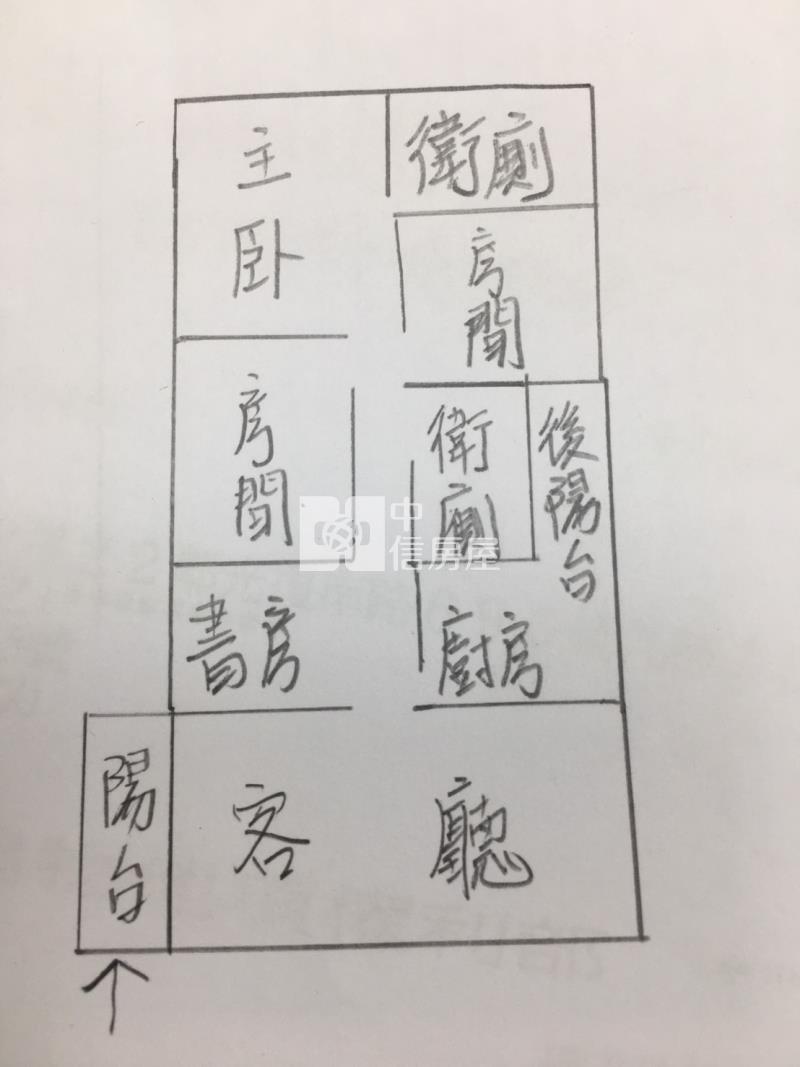 主臥
衛廁
房間
房間
衛廁
後陽台
書房
廚房
陽台
客廳
中信房屋